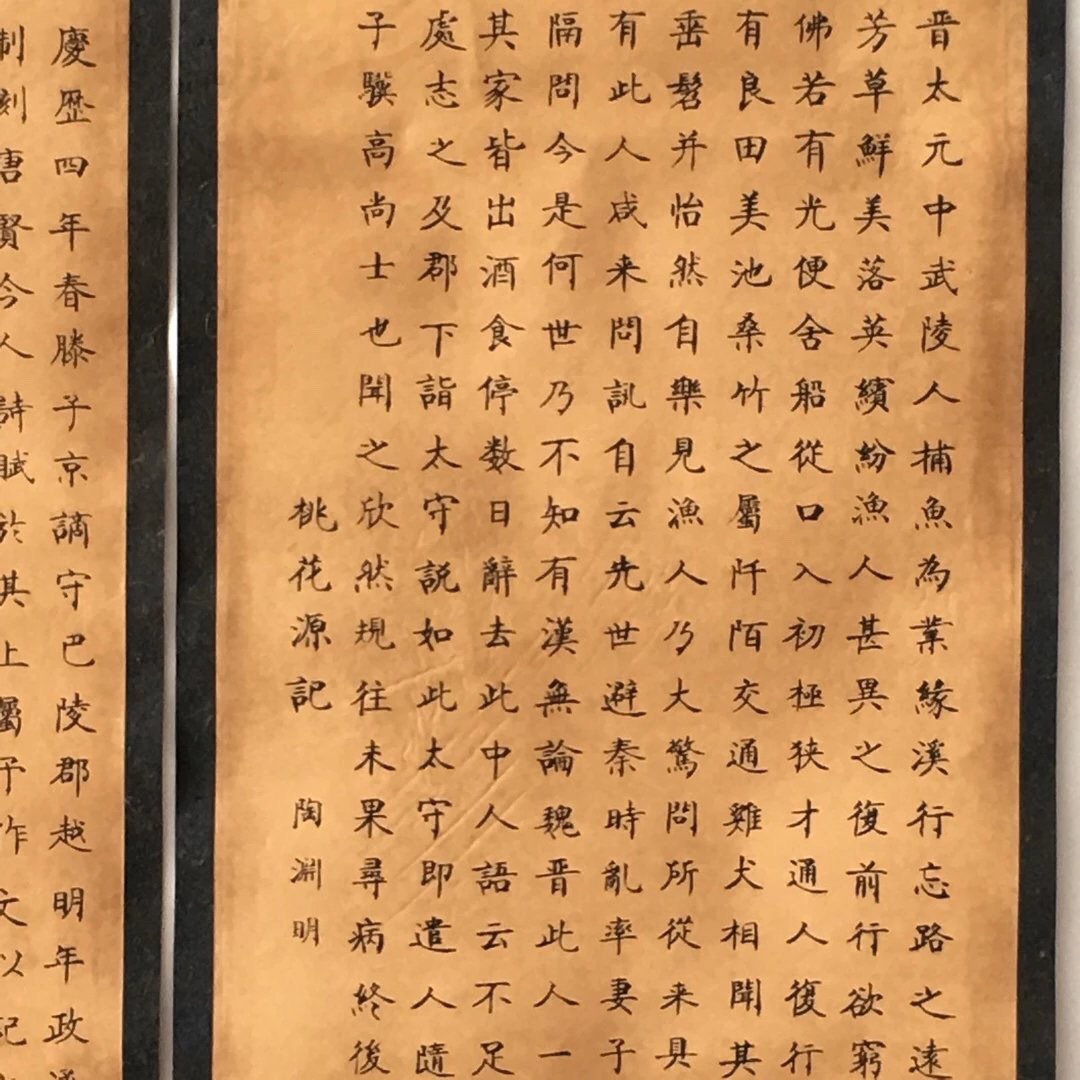 晋太元中武陵人捕魚為業緣溪行忘路之遠
芳草鮮美落英繽紛漁人甚異之復前行欲窮
佛若有光便舍船從口入初極狭才通人復行
有良田美池桑竹之屬阡陌交通雞犬相聞其
垂髫并怡然自樂見漁人乃大驚問所從来具
有此人咸来問訊自云先世避秦時亂率妻子
隔問今是何世乃不知有漢無論魏晋此人一
其家皆出酒食停数日辭去此中人語云不足
處志之及郡下詣太守説如此太守即遣人隨
子驥高尚士也聞之欣然規往未果尋病終後
桃花源記 陶淵明
慶歴四年春滕子京謫守巴陵郡越明年政
制刻唐賢今人詩賦於其上屬予作文以記